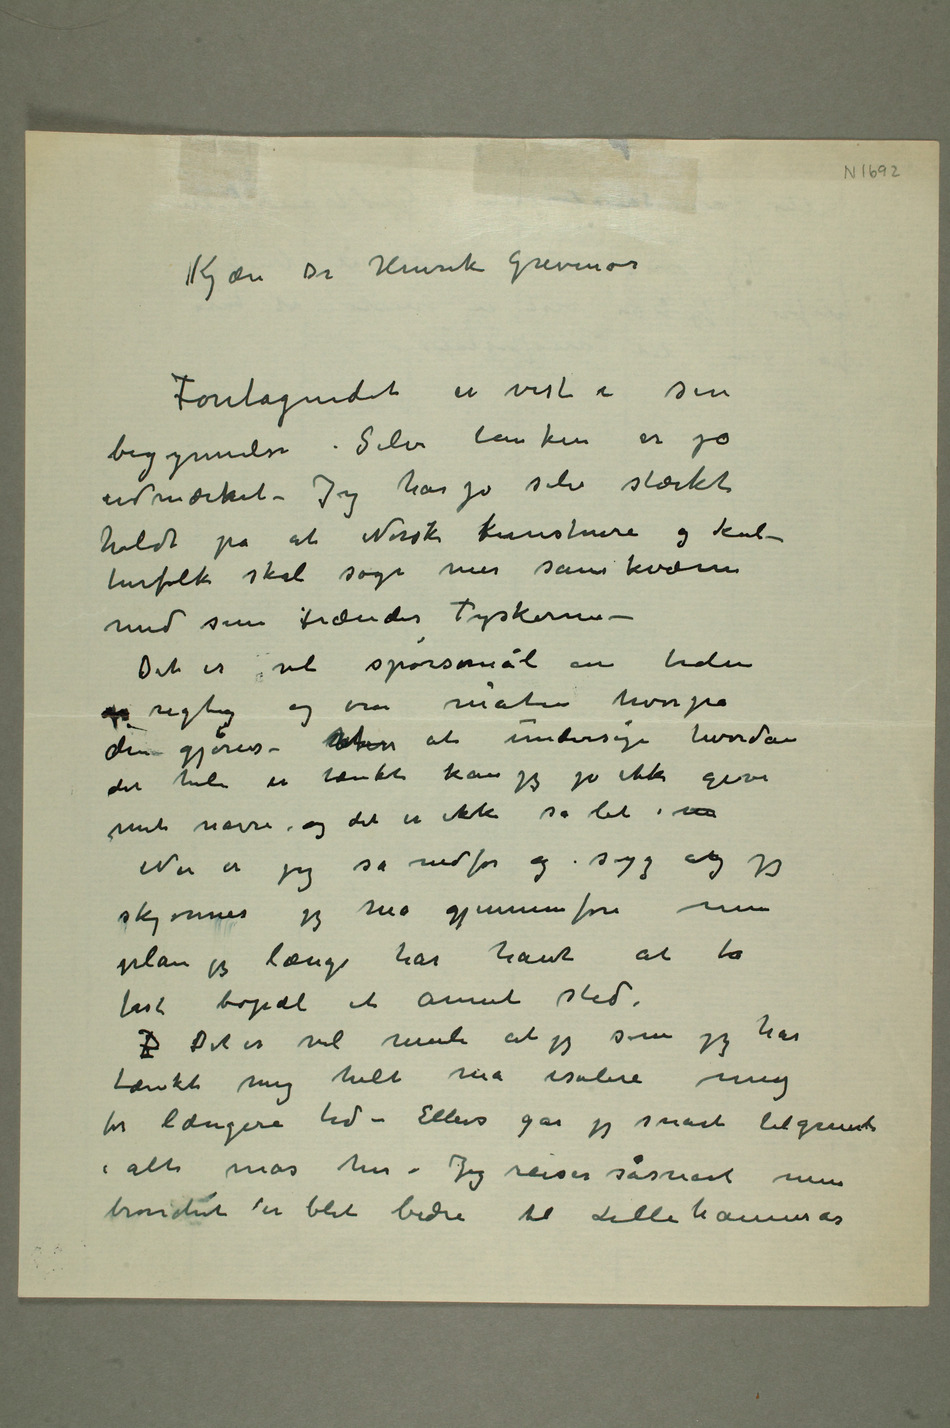 N 1692
Kjære Dr Henrik Grevenor
Foretagendet er vist i sin
begynnelse. Selve tanken er jo
udmærket – Jeg har jo selv stærkt
holdt på at Norske kunstnere og kul-
turfolk skal søge mer samkvæm
med sine frænder Tyskerne –
Det er vel spørsomål om tiden
er rigtig og om måten hvorpå
den gjøres – Uten at undersøge hvordan
det hele er tænkt kan jeg jo ikke give
mit navn. og det er ikke så let
Nu er jeg så nedfor og syg at jeg
skjønner jeg må gjennemføre min
plan jeg længe har havt at ta
fast bopæl et annet sted.
Det er vel mulig at jeg som jeg har
tænkt mig helt må isolere mig
for længere tid – Ellers går jeg snart tilgrunde
i alt mas her – Jeg reiser såsnart min
bronchit er blit bedre til Lillehammer as